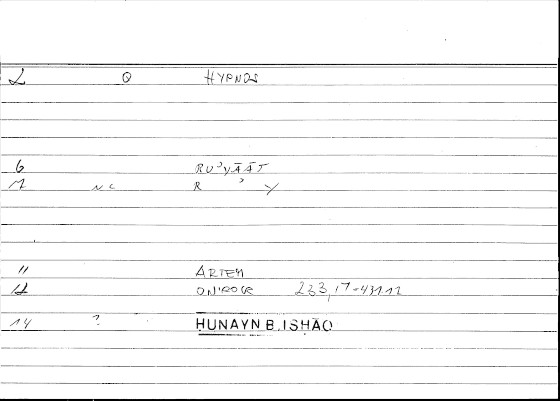 2 Q HYPNOS
6 RU'YĀĀT
7 NC R ' Y
11 ARTEM
12 ONIROCR 233,17-43112
14 ? HUNAYN B.ISHĀO